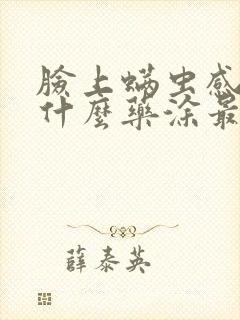 臉上螨虫感
什麼藥涂最
薛泰英